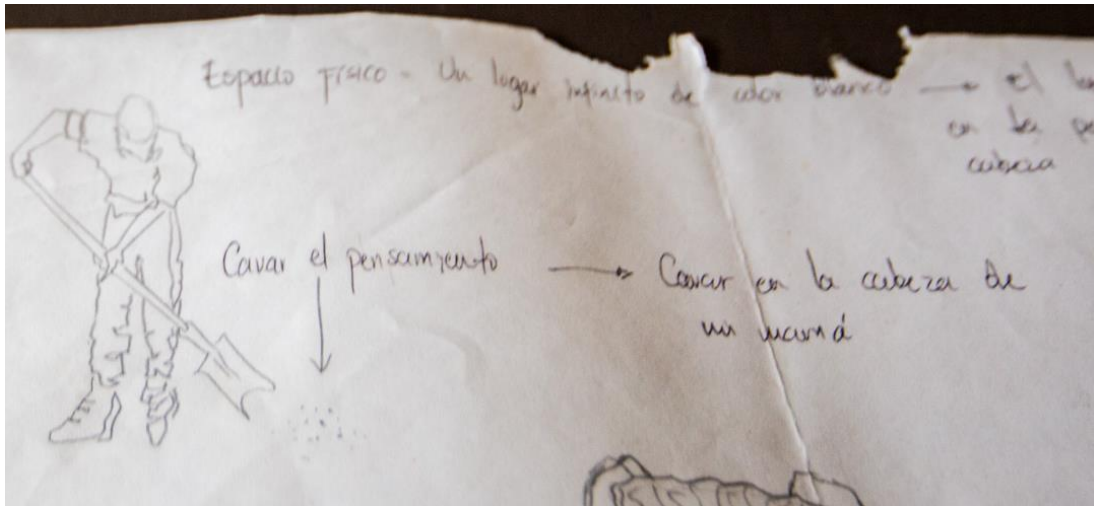 Espacio Físico - Un lugar infinito de color blanco → El
en la
cabeza
Cavar el pensamiento → Cavar en la cabeza de
mi mamá